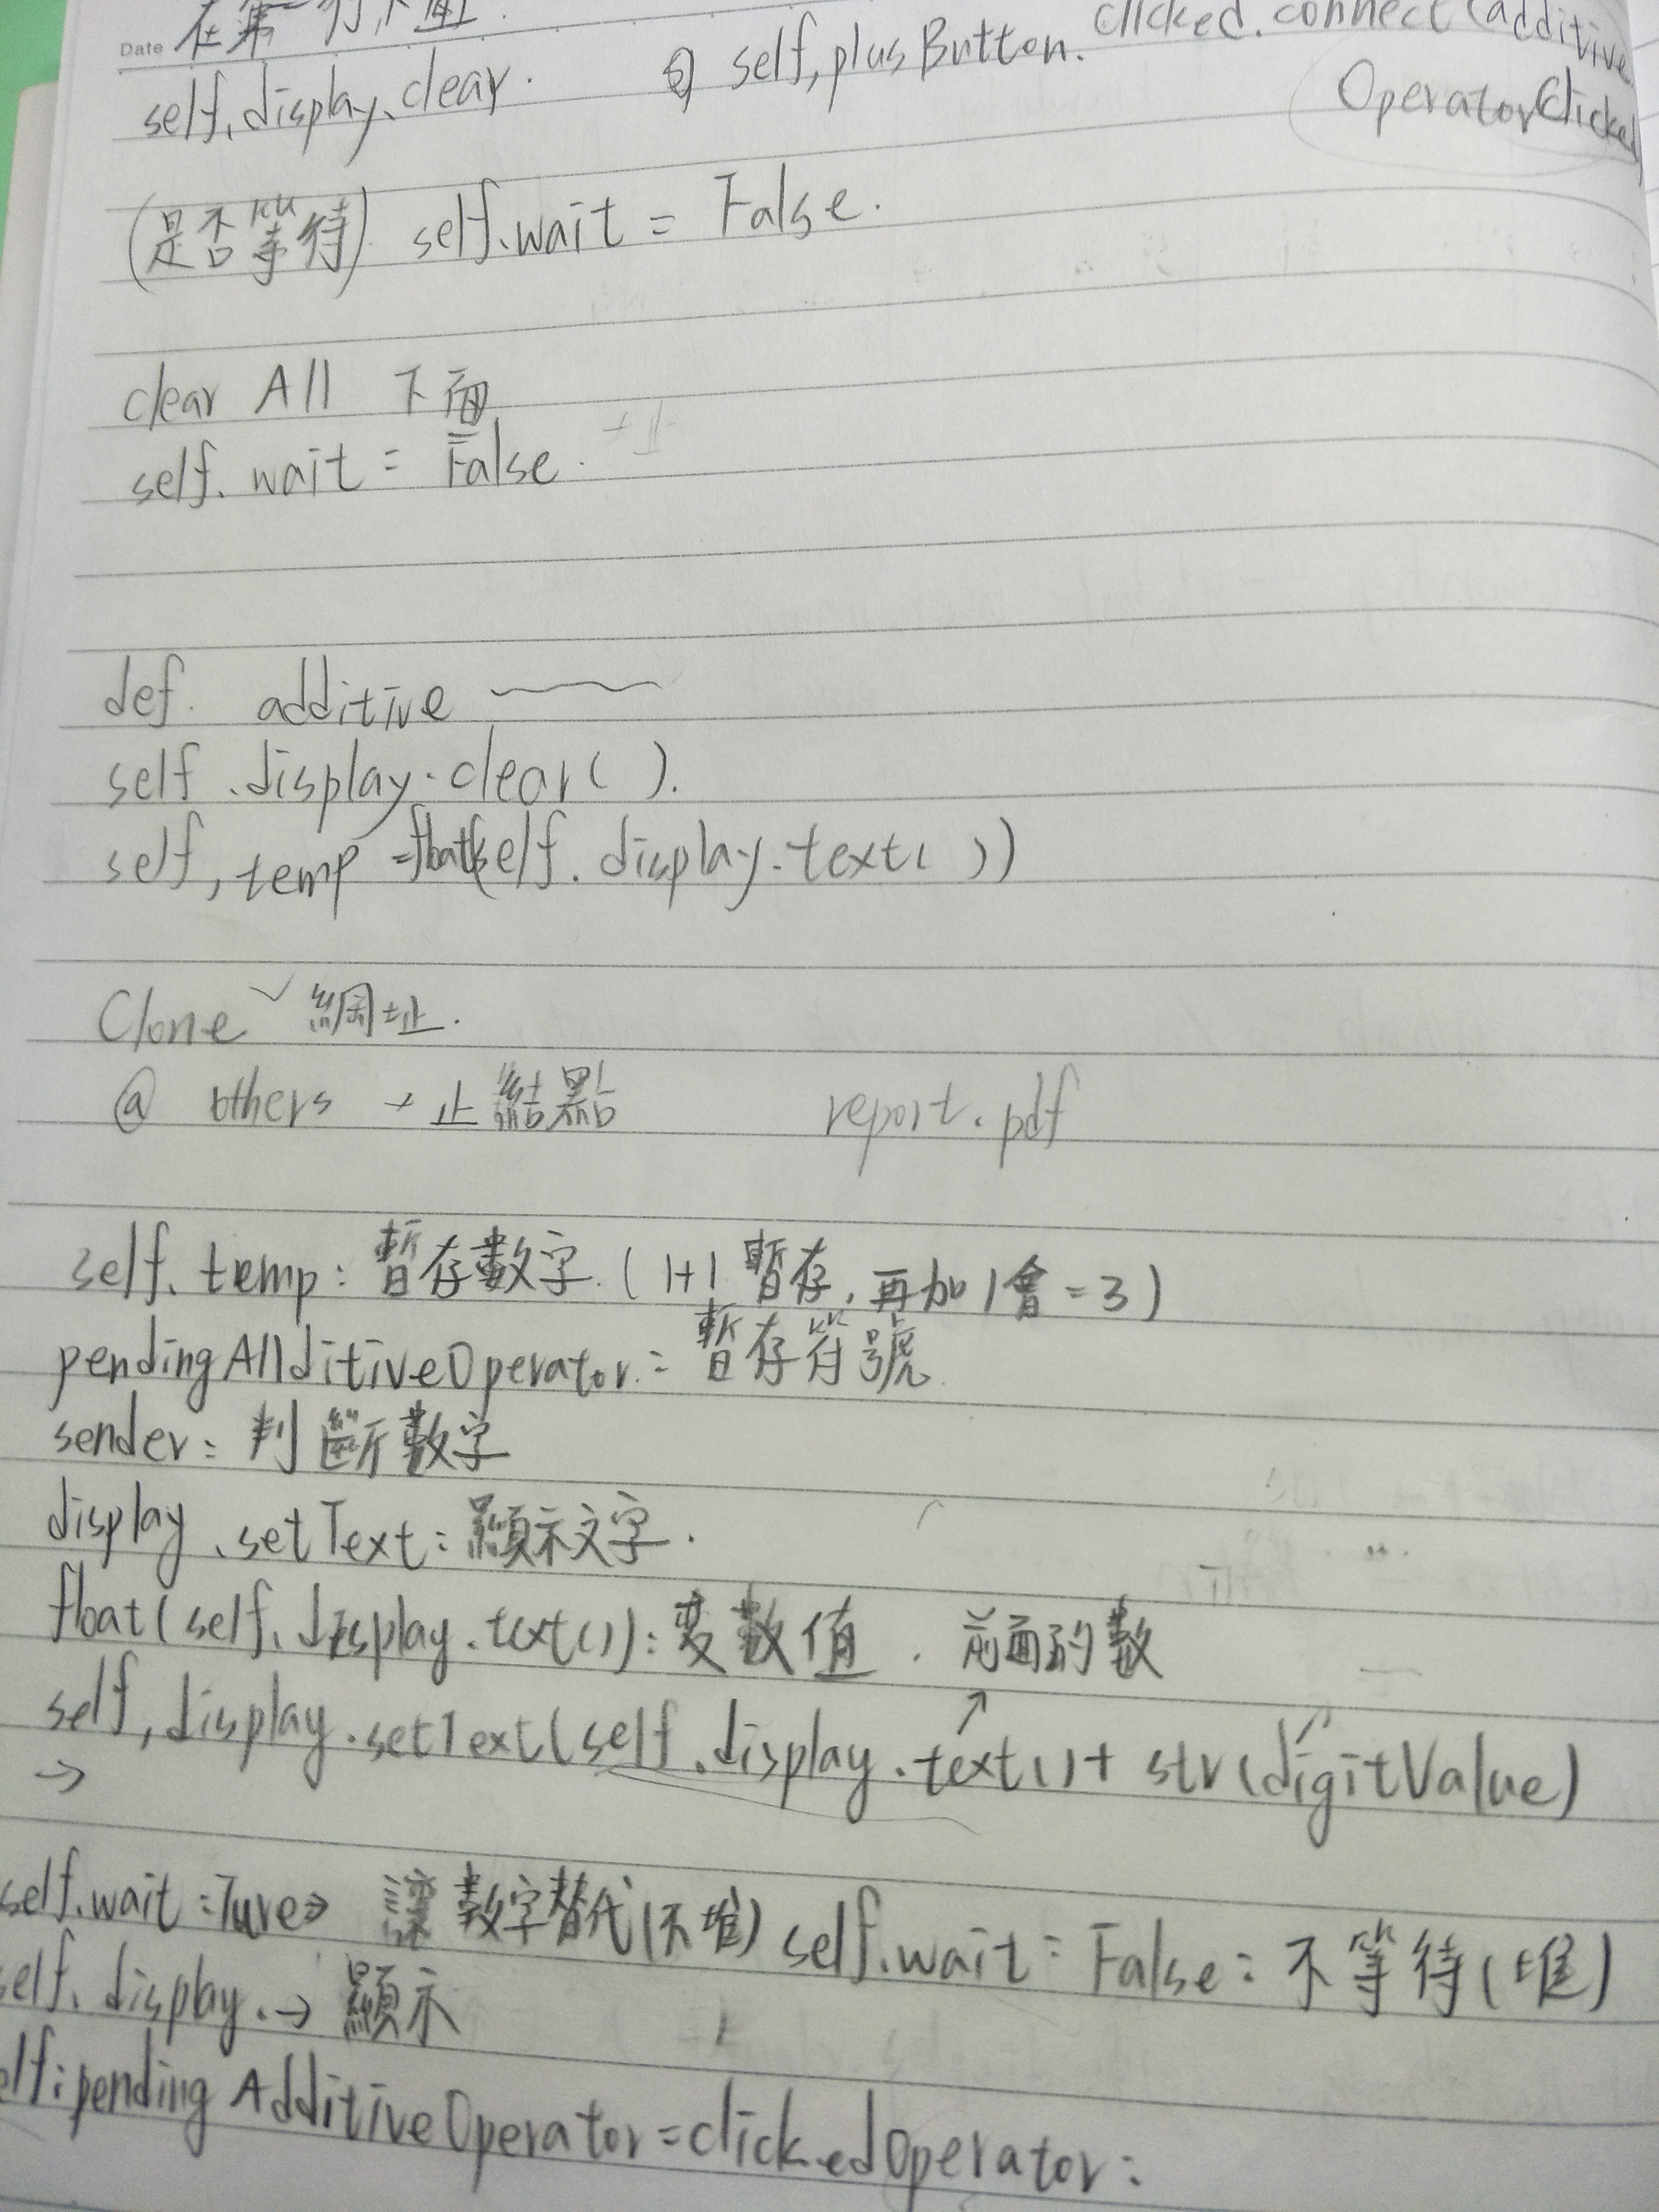 Date 在第一行下面.
self.display.clear.
⑥ self,plusButton.clicked.connect(additive
OperatorClicked
(是否等待) self.wait = False.
clear All 下面
self. wait = False.
def. additive
self .display.clear( ).
self,temp =float(self. display.text( ))
Clone 網址.
@ others → 止 結點 report.pdf
self. temp: 暫存數字.(1+1 暫存, 再加1會=3)
pendingAllditiveOperator: 暫存符號
sender: 判斷數字
display .setText: 顯示文字.
float(self.display.text()): 變數值 . 前面的數
self,display.setText(self.display.text()+ str(digitValue)
→
self.wait=Ture⇒ 讓數字替代(不堆) self.wait= False: 不等待(堆)
self. display.→ 顯示
elf:pendingAdditiveOperator=clickedOperator: